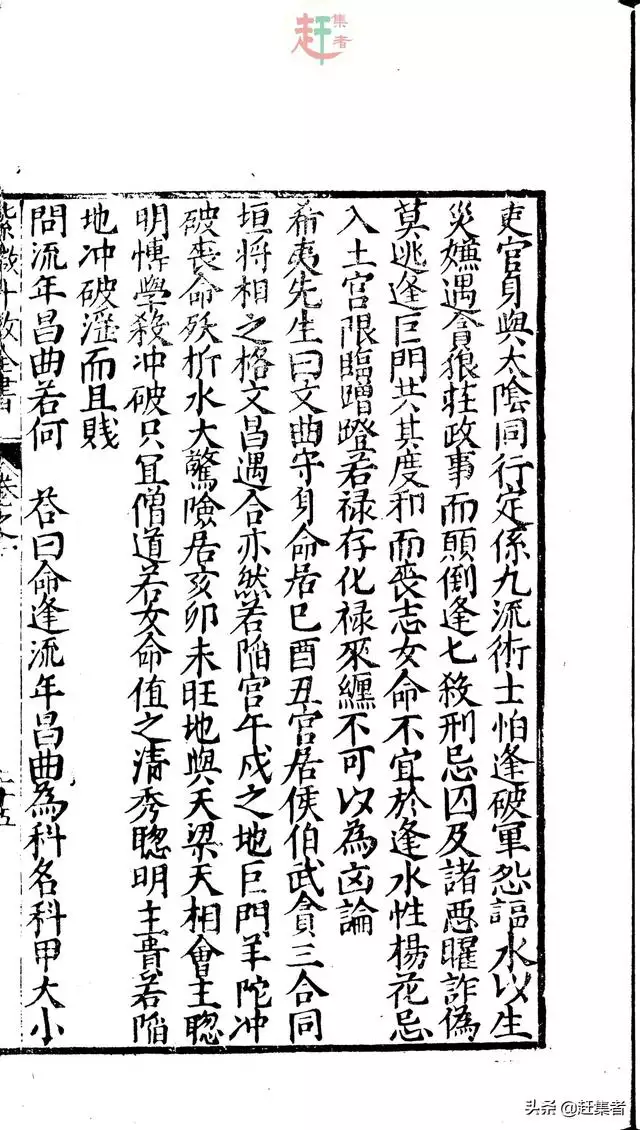 集者
赶
吏官身與太陰同行定係九流術士怕逢破軍怨謳水以生
災嫌遇貪狼莊政事而顛倒逢七殺刑忌囚及諸惡曜詐偽
莫逃逢巨門共其度和而喪志女命不宜於逢水性楊花忌
入土宮限臨蹭蹬若祿存化祿來纏不可以為凶論
希夷先生曰文曲守身命居巳酉丑宮居侯伯武貪三合同
垣將相之格文昌遇合亦然若陷宮午戍之地巨門羊陀冲
破喪命殀折水大驚險居亥卯未旺地與天梁天相會主聰
明慱學殺冲破只宜僧道若女命值之清秀聰明主貴若陷
地冲破滛而且賎
問流年昌曲若何 荅曰命逢流年昌曲為科名科甲大小
微斗数全書
头条 @赶集者